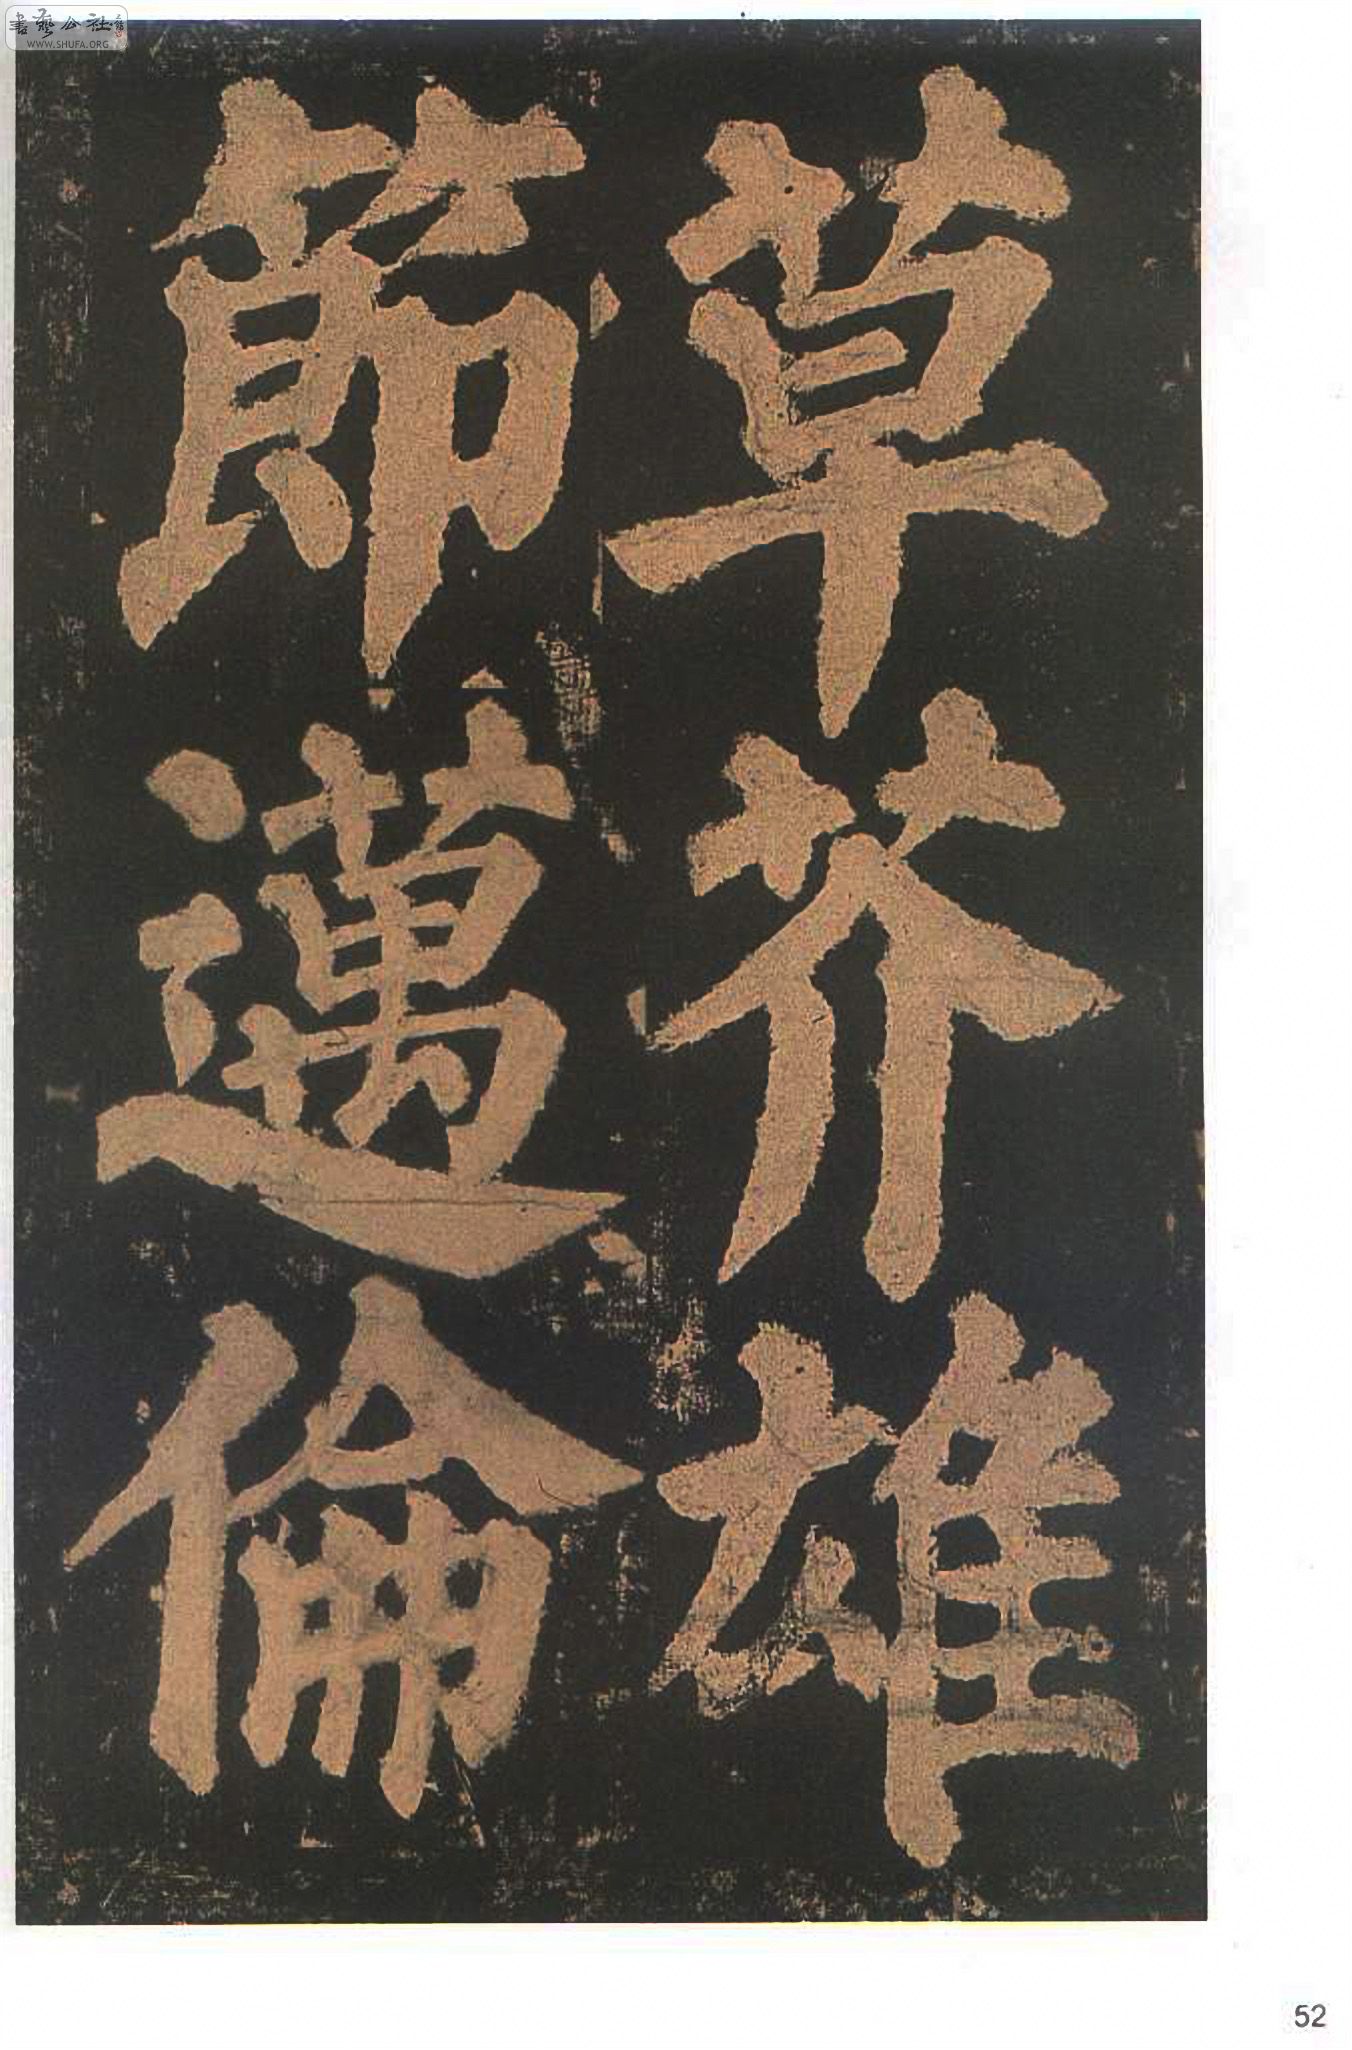 書藝公社
WWW.SHUFA.ORG
草芥雄
節邁倫
52